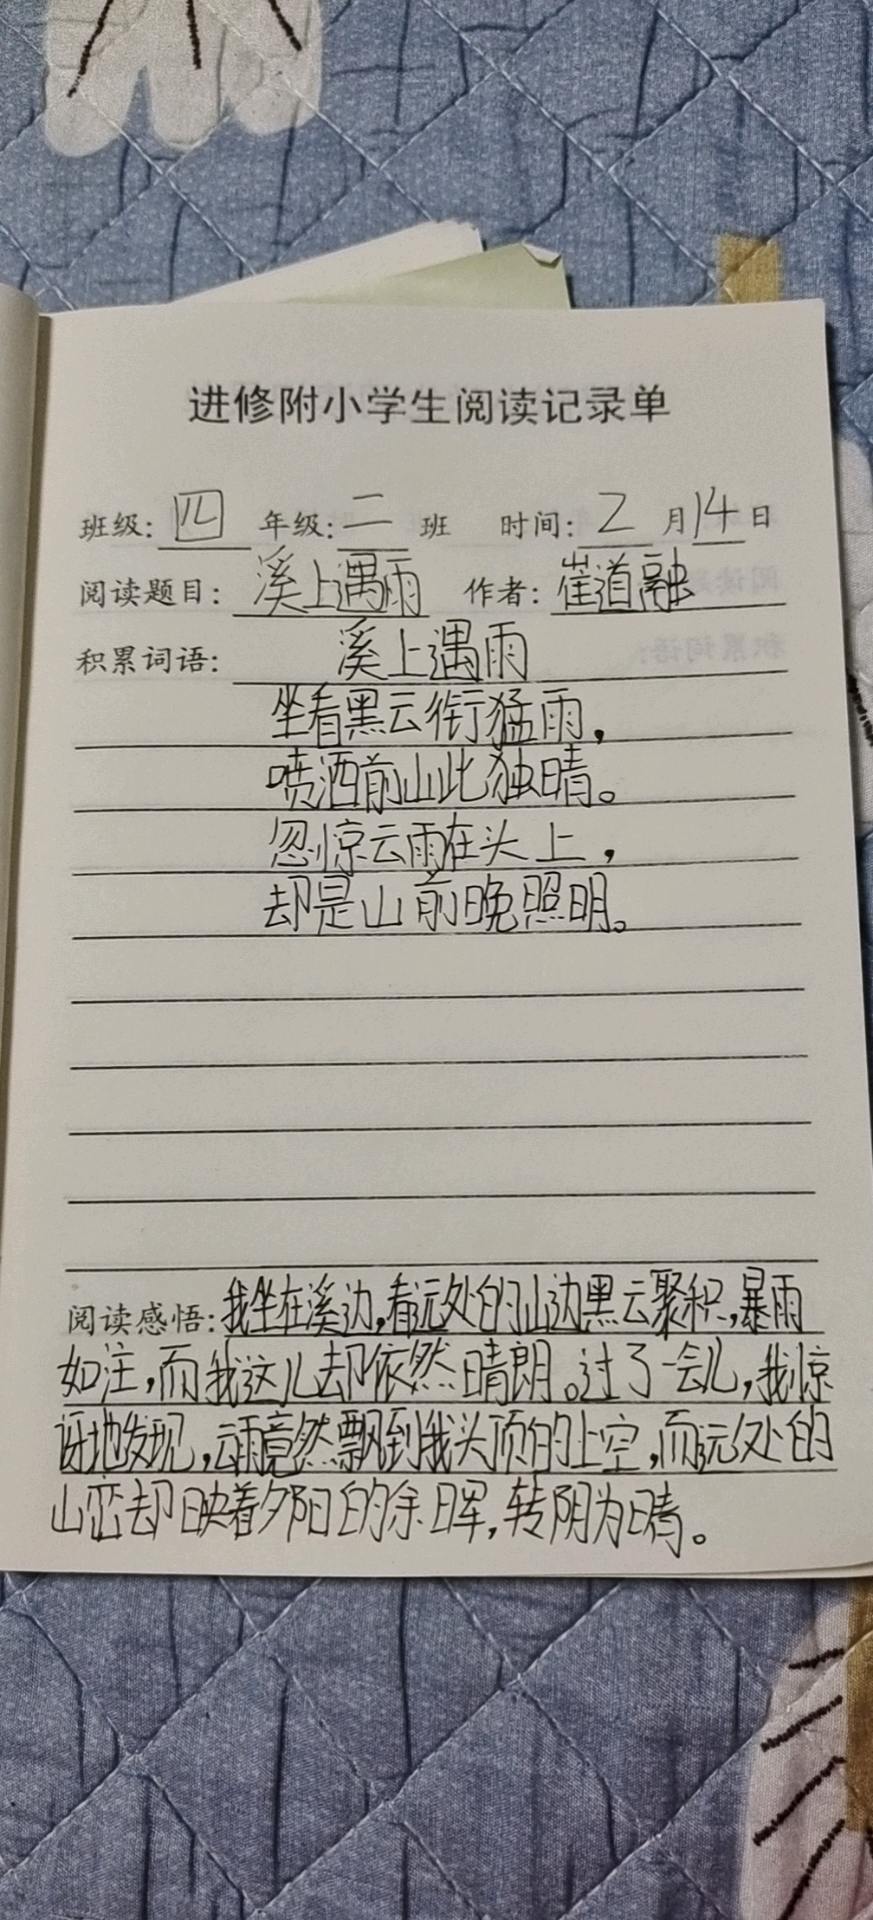 进修附小学生阅读记录单
班级:四 年级:二 班 时间:2 月14日
阅读题目:溪上遇雨 作者:崔道融
积累词语:溪上遇雨
坐看黑云衔猛雨,
喷洒前山此独晴。
忽惊云雨在头上,
却是山前晚照明。
阅读感悟:我坐在溪边,看远处的山边黑云聚积,暴雨
如注,而我这儿却依然晴朗。过了一会儿,我惊
讶地发现,云雨竟然飘到我头顶的上空,而远处的
山峦却映着夕阳的余晖,转阴为晴。